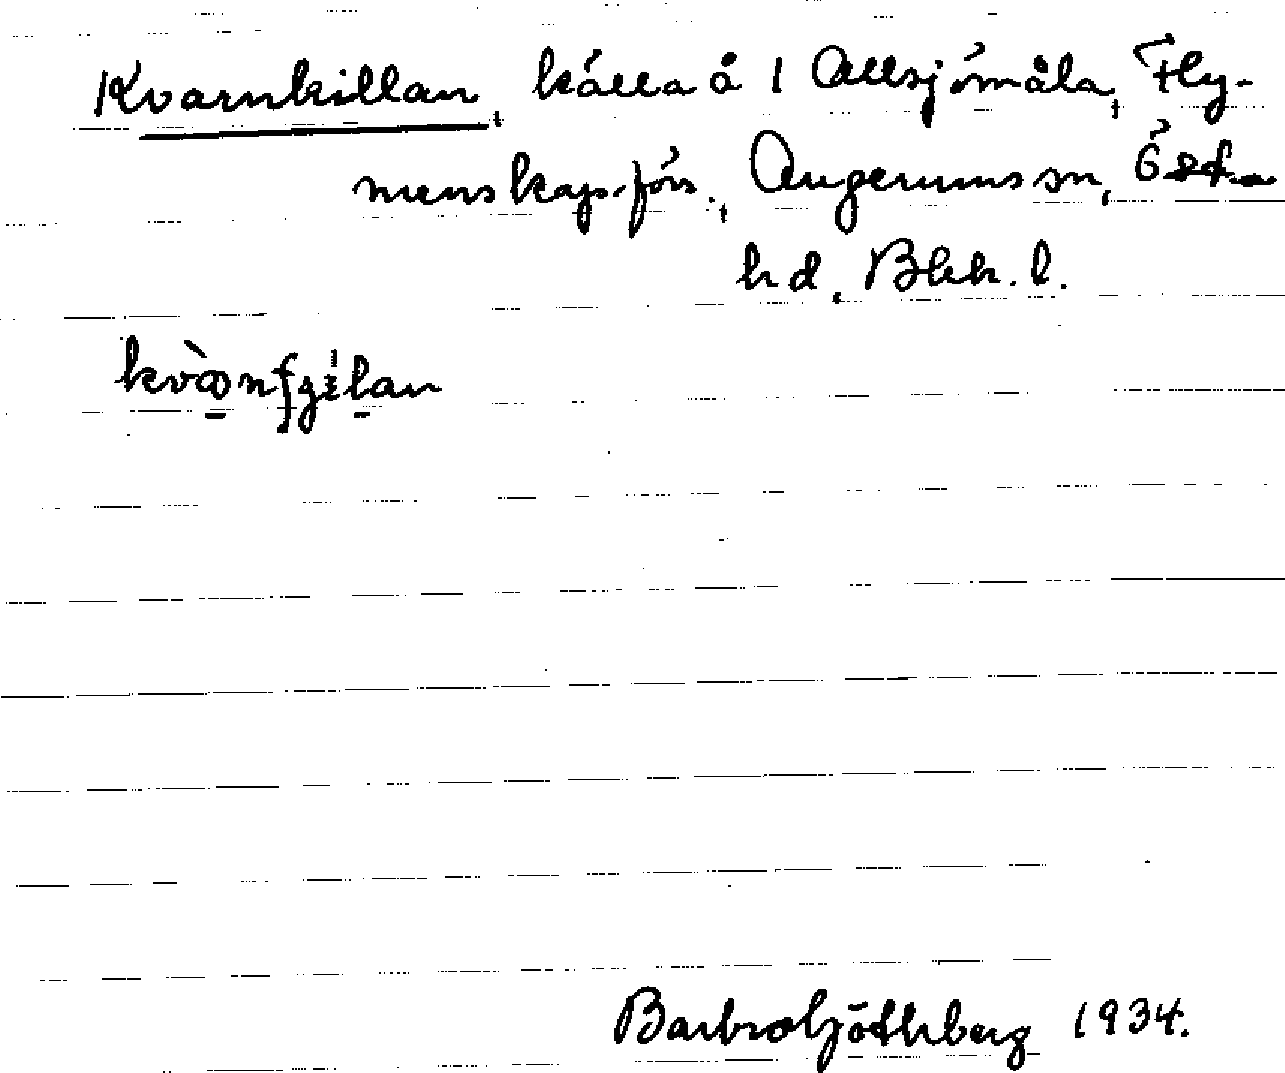 Kvarnkillan, källa å 1 Allsjömåla, Fly-
mens kap.förs., Augerums sn, Öst.
hd, Blek. l.
Barbro Götherberg 1934.